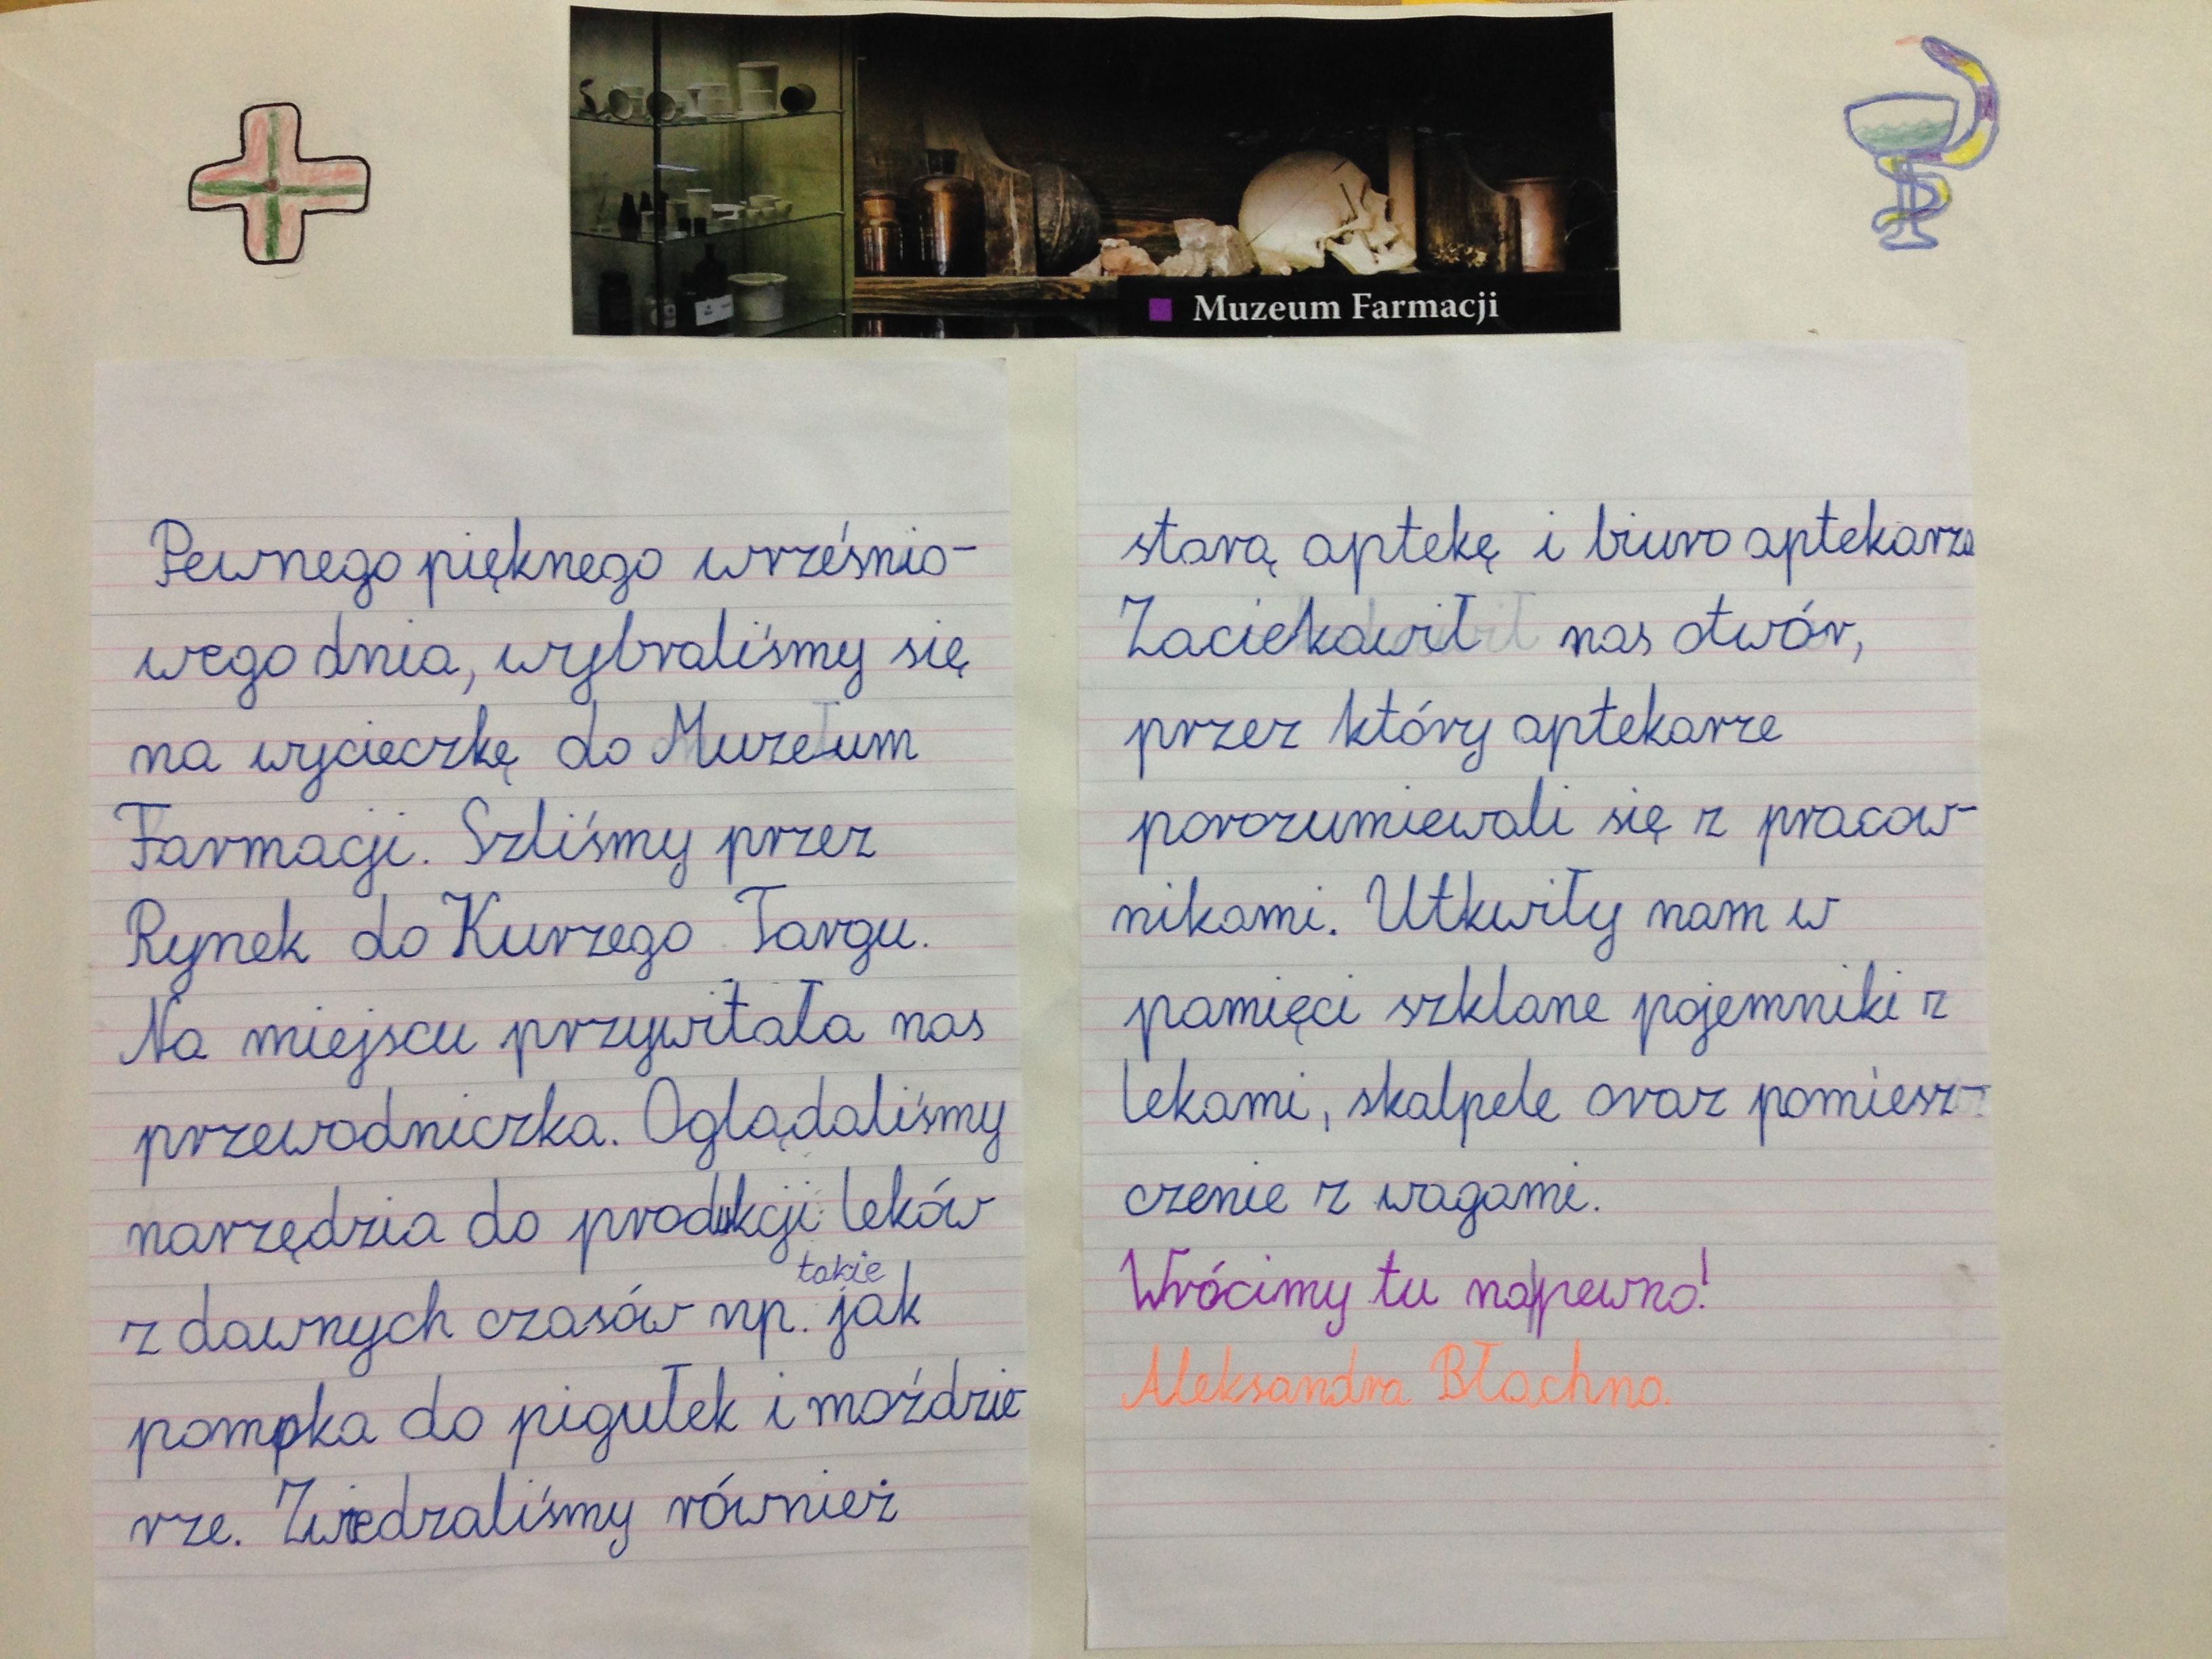 Muzeum Farmacji
Pewnego pięknego wrześnio-
wego dnia, wybraliśmy się
na wycieczkę do Muzeum
Farmacji. Szliśmy przez
Rynek do Kurzego Targu.
Na miejscu przywitała nas
przewodniczka. Oglądaliśmy
narzędzia do produkcji leków
takie
z dawnych czasów np. jak
pompka do pigułek i moździe-
rze. Zwiedzaliśmy również
starą aptekę i biuro aptekarza
Zaciekawił nas otwór,
przez który aptekarze
porozumiewali się z pracow-
nikami. Utkwiły nam w
pamięci szklane pojemniki z
lekami, skalpele oraz pomiesz-
czenie z wagami.
Wrócimy tu na|pewno!
Aleksandra Błachno.